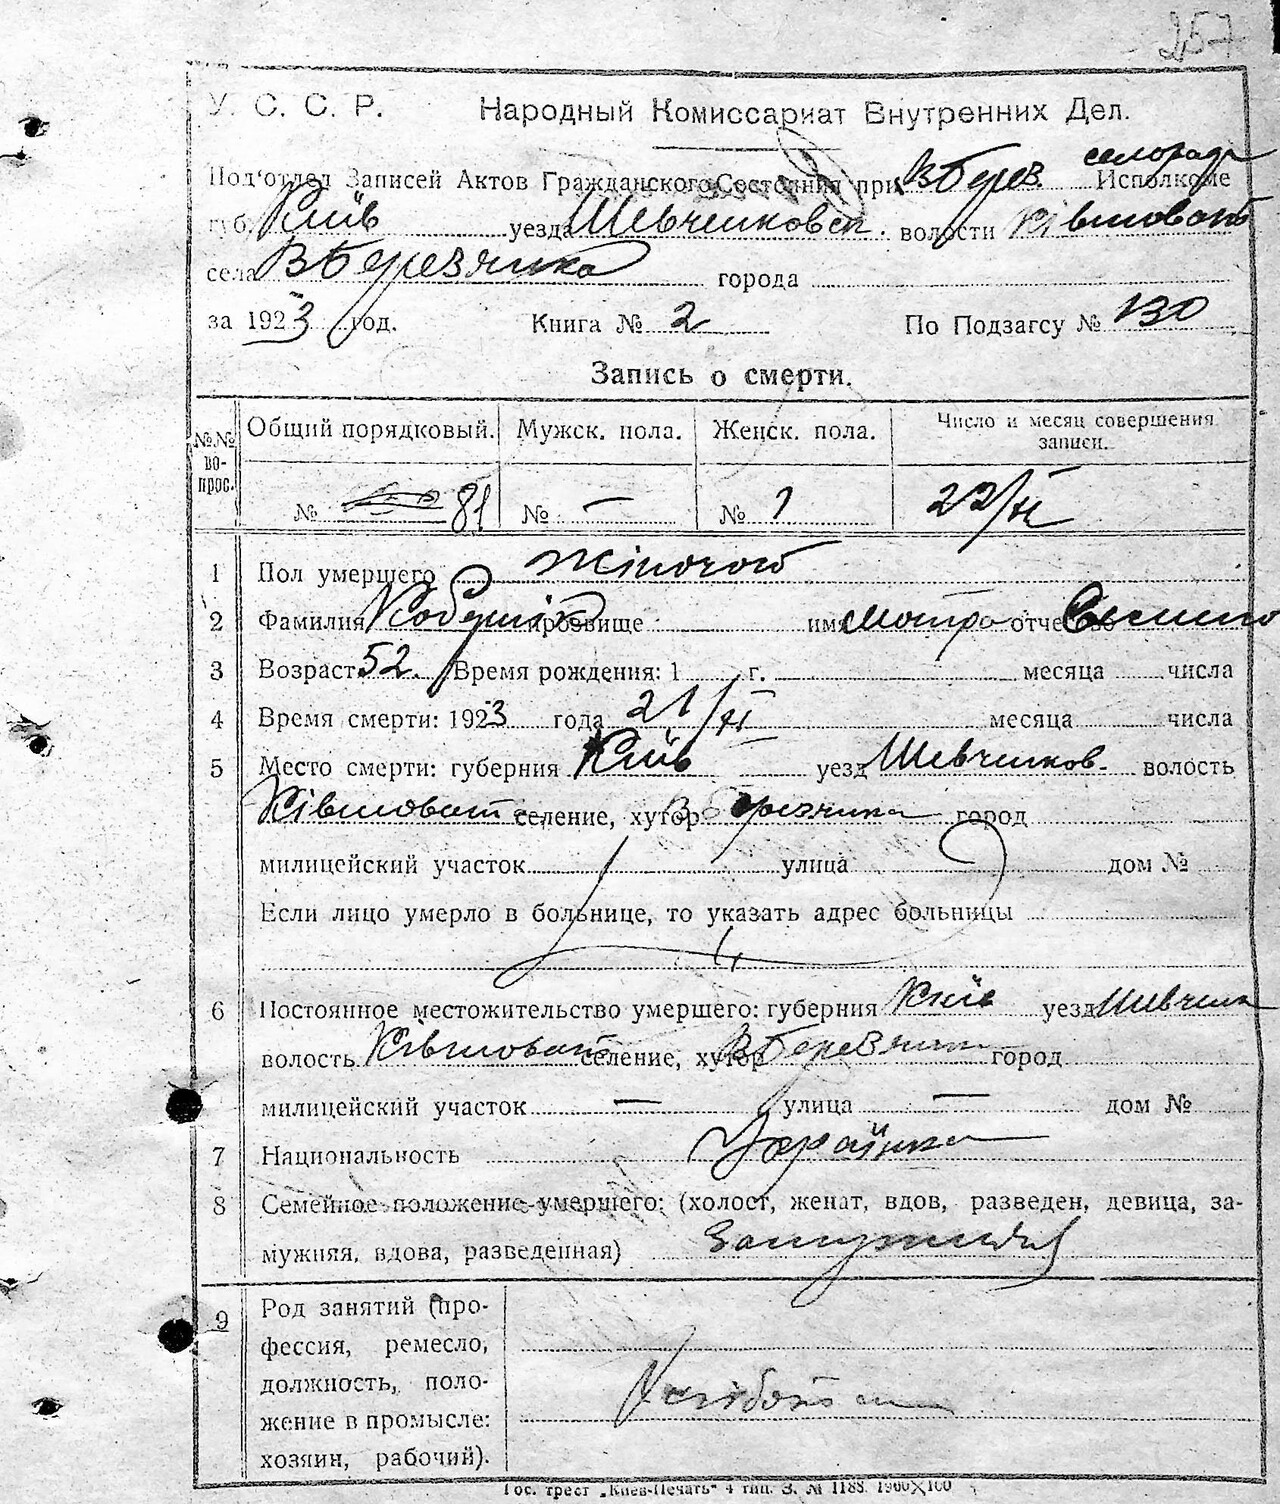 257
У. С. С. Р. Народный Комиссариат Внутренних Дел.
Под'отдел Записей Актов Гражданского Состояния при В Берез. селоради Исполкоме
губ. Київ уезда Шевченковск. волости Ківшоват
села В Березянка города
за 1923 год. Книга № 2 По Подзагсу № 130
Запись о смерти.
№№ вопрос. Общий порядковый. Мужск. пола. Женск. пола. Число и месяц совершения записи.
№ 81 № — № 1 22/XI
1 Пол умершего Жіночого
2 Фамилия прозвище имя Мотря отчество
3 Возраст 52. Время рождения: 1 г. месяца числа
4 Время смерти: 1923 года 21/XI месяца числа
5 Место смерти: губерния Київ уезд Шевченков. волость
Ківшоват селение, хутор В Березянка город
милицейский участок улица дом №
Если лицо умерло в больнице, то указать адрес больницы
6 Постоянное местожительство умершего: губерния Київ уезд Шевченк
волость Ківшоват селение, хутор В Березянка город
милицейский участок — улица — дом №
7 Национальность Українка
8 Семейное положение умершего: (холост, женат, вдов, разведен, девица, за-
мужняя, вдова, разведенная) Замужня
9 Род занятий (про-
фессия, ремесло,
должность, поло-
жение в промысле:
хозяин, рабочий).
Хлібороб
Гос. трест „Киев-Печать" 4 тип. З. № 1188. 1900×100